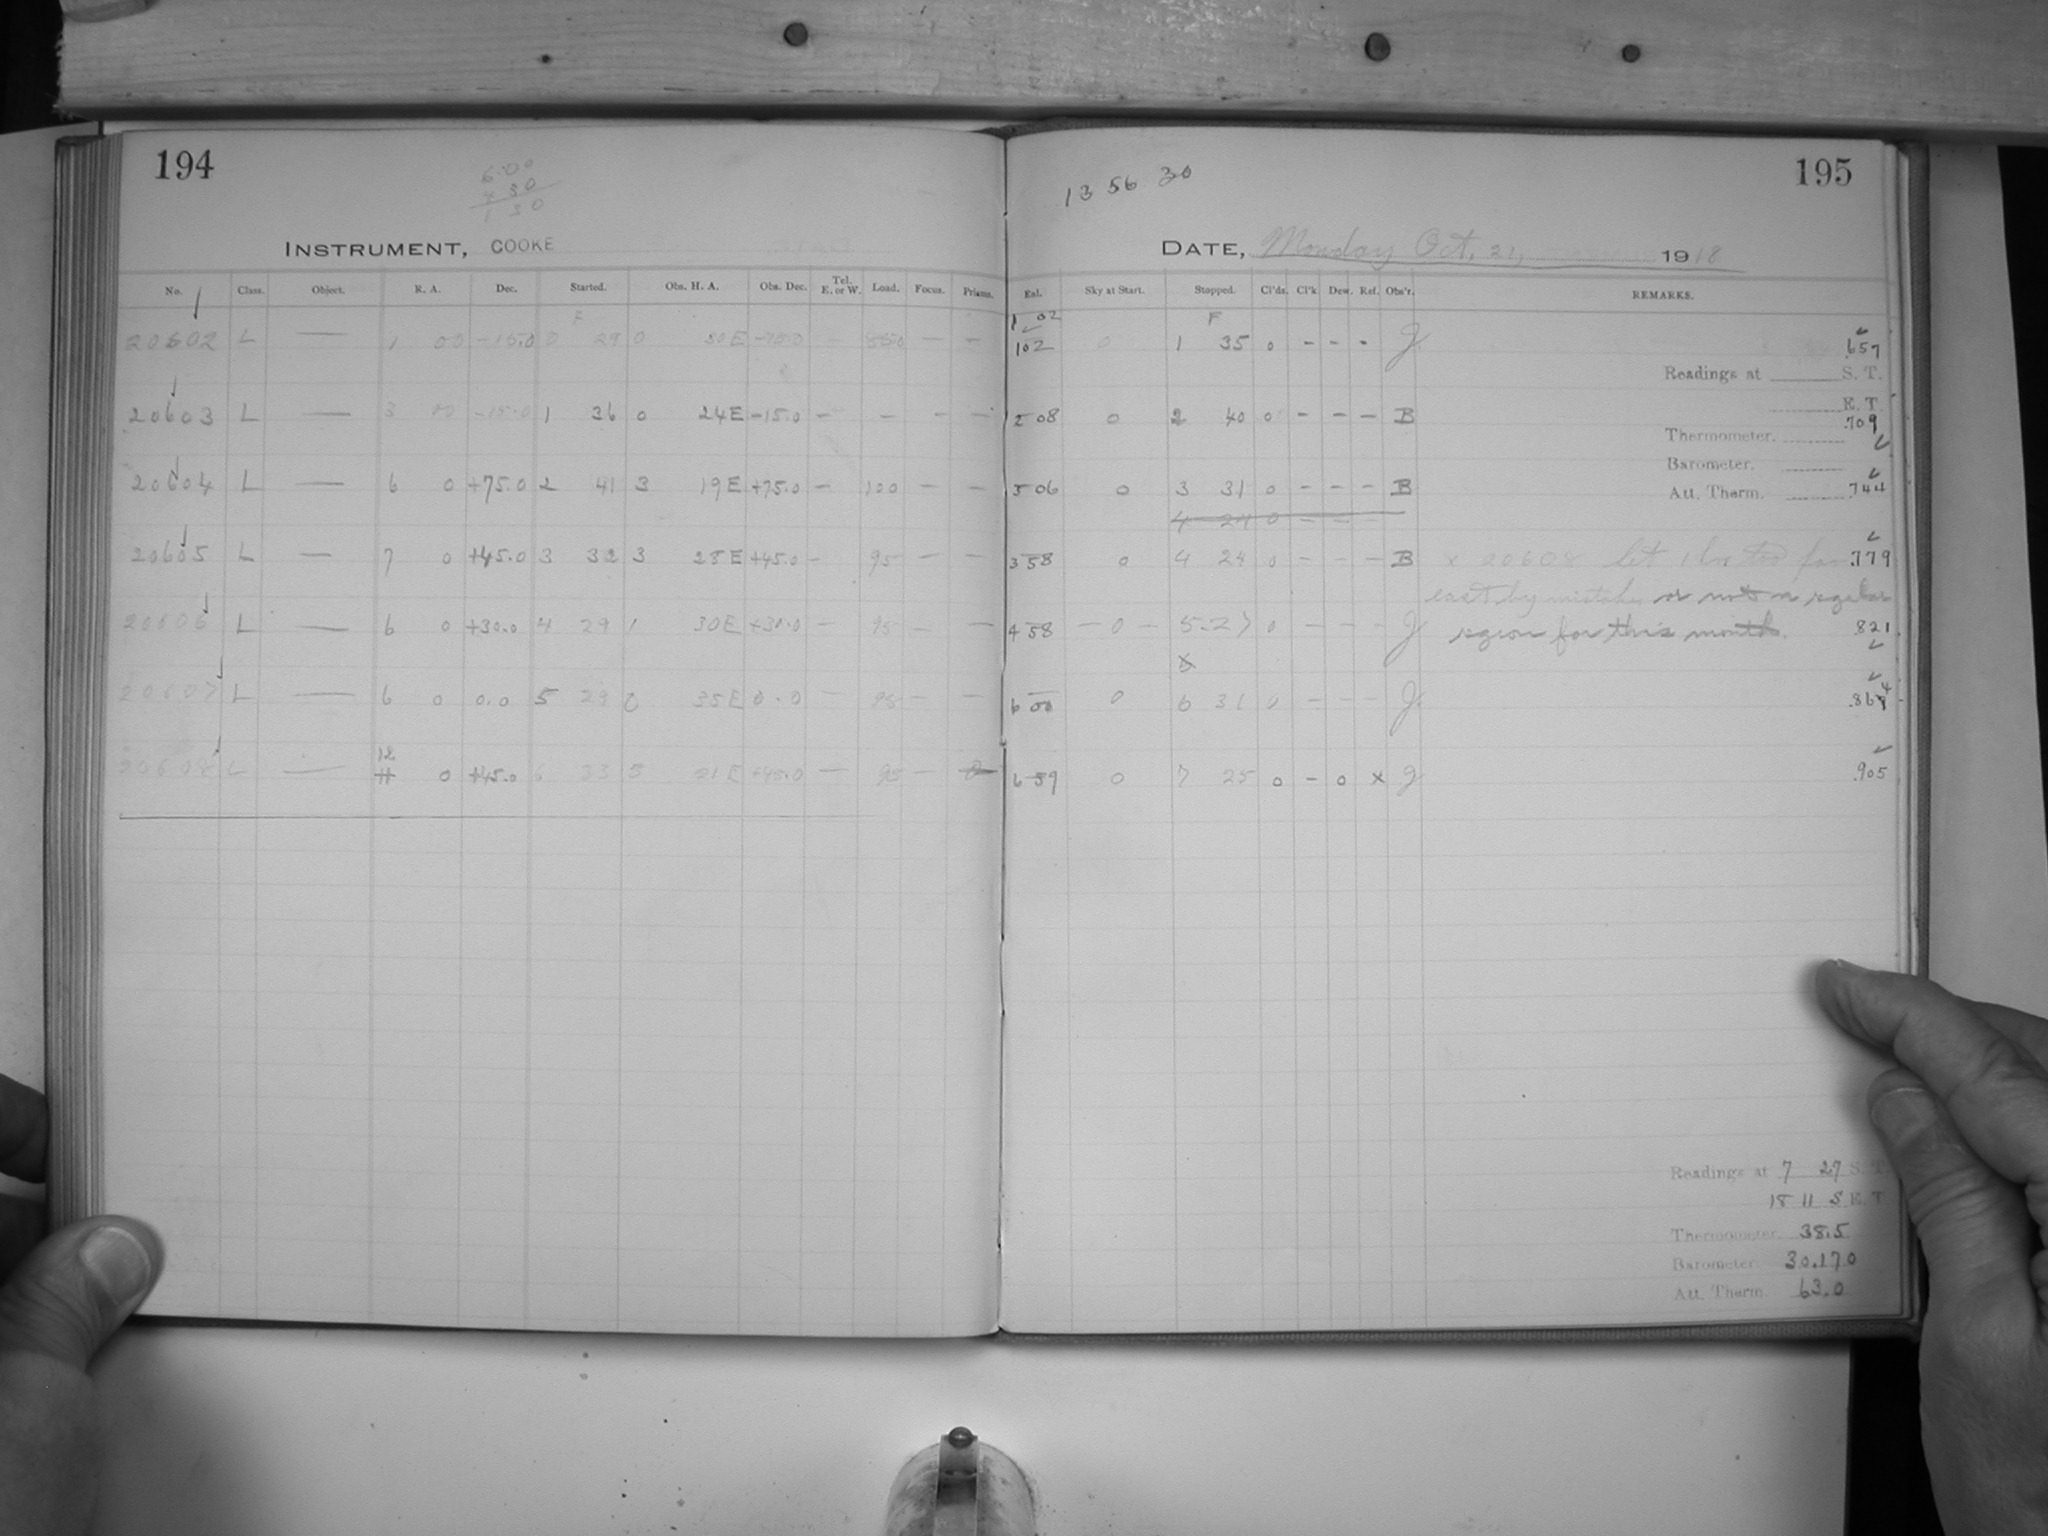 194
6 00
4 30
1 30
INSTRUMENT, COOKE
No. Class. Object. R. A. Dec. Started. Obs. H. A. Obs. Dec. Tel. E. or W. Load. Focus. Prisms.
F
20602 L — 1 00 -15.0 0 29 0 30 E — — —
20603 L — 3 00 -15.0 1 36 0 24 E -15.0 — — — —
20604 L — 6 0 +75.0 2 41 3 19 E +75.0 — 100 — —
20605 L — 7 0 +45.0 3 32 3 28 E +45.0 — 95 — —
20606 L — 6 0 +30.0 4 29 1 30 E +30.0 — 95 — —
20607 L — 6 0 0.0 5 29 0 35 E 0.0 — 95 — —
12
20608 L — 11 0 +45.0 6 33 5 21 E +45.0 — 95 —
195
13 56 30
DATE, Monday Oct. 21, 1918
Exl. Sky at Start. Stopped. Cl'ds. Cl'k Dew. Ref. Obs'r. REMARKS.
1 02 F
102 0 1 35 0 - - - J .657
Readings at S. T.
E. T.
208 0 2 40 0 - - - B .709
Thermometer.
Barometer.
506 0 3 31 0 - - - B Att. Therm. .744
4 24 0 - - -
358 0 4 24 0 - - - B x 20608 set 1 hr too far .779
east by mistake, or not a regular
458 - 0 - 5 27 0 - - - J region for this month. .821
x
6 00 0 6 31 0 - - - J .864
6 59 0 7 25 0 - 0 x J .905
Readings at 7 27 S. T.
18 11 5 E. T
Thermometer 38.5
Barometer 30.170
Att. Therm. 63.0